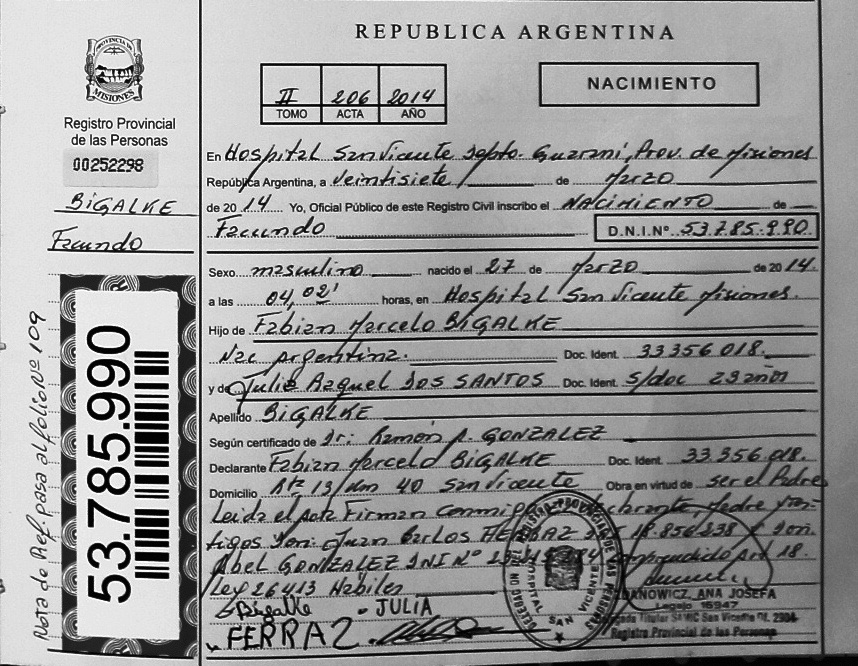 PROVINCIA DE
MISIONES
Registro Provincial
de las Personas
00252298
BIGALKE
Facundo
53.785.990
Nota de Ref. pasa al folio Nº 109
REPUBLICA ARGENTINA
II 206 2014
TOMO ACTA AÑO
NACIMIENTO
En Hospital San Vicente Depto. Guaraní, Prov. de Misiones
República Argentina, a veintisiete de Marzo
de 2014 Yo, Oficial Público de este Registro Civil inscribo el NACIMIENTO de
Facundo D.N.I.Nº 53.785.990
Sexo masculino nacido el 27 de Marzo de 2014.
a las 04,02' horas, en Hospital San Vicente Misiones.
Hijo de Fabian Marcelo BIGALKE
Nac argentina. Doc. Ident. 33.356.018.
y de Julia Raquel DOS SANTOS Doc. Ident. S/doc 23 años
Apellido BIGALKE
Según certificado de Dr: Ramón A. GONZALEZ
Declarante Fabian Marcelo BIGALKE Doc. Ident. 33.356.018.
Domicilio Km 40 San Vicente Obra en virtud de ser el Padre
Leida el acta Firman Conmigo declarante, Madre y tes-
tigos Don: Juan Carlos FERRAZ DNI 18.856.238 y Don:
Abel GONZALEZ DNI Nº comprendido Art 18.
Ley 26413 Habiles
Bigalke JULIA
FERRAZ
HOSPITAL SAN VICENTE
ANA JOSEFA
Legajo 16947
Registro Provincial de las Personas